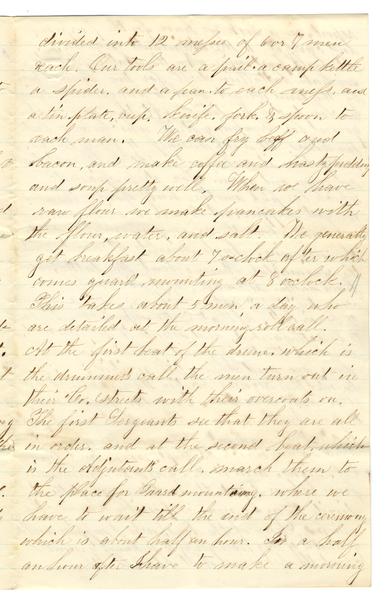 divided into 12 messes of 6 or 7 men
each. Our tools are a pail, a camp kettle
a spider, and a pan to each mess, and
a tin plate, cup, knife, fork & spoon to
each man. We can fry beef and
bacon, and make coffee and hasty pudding
and soup pretty well. When we have
raw flour we make pancakes with
the flour, water, and salt. We generally
get breakfast about 7 oclock after which
comes guard mounting at 8 oclock.
This takes about 5 men a day who
are detailed at the morning roll call.
At the first beat of the drum, which is
the drummers call, the men turn out in
their Co. streets with their overcoats on.
The first Sergeants see that they are all
in order, and at the second beat, which
is the Adjutants call, march them to
the place for Guard mounting, where we
have to wait till the end of the ceremony
which is about half an hour. In a half
an hour after I have to make a morning